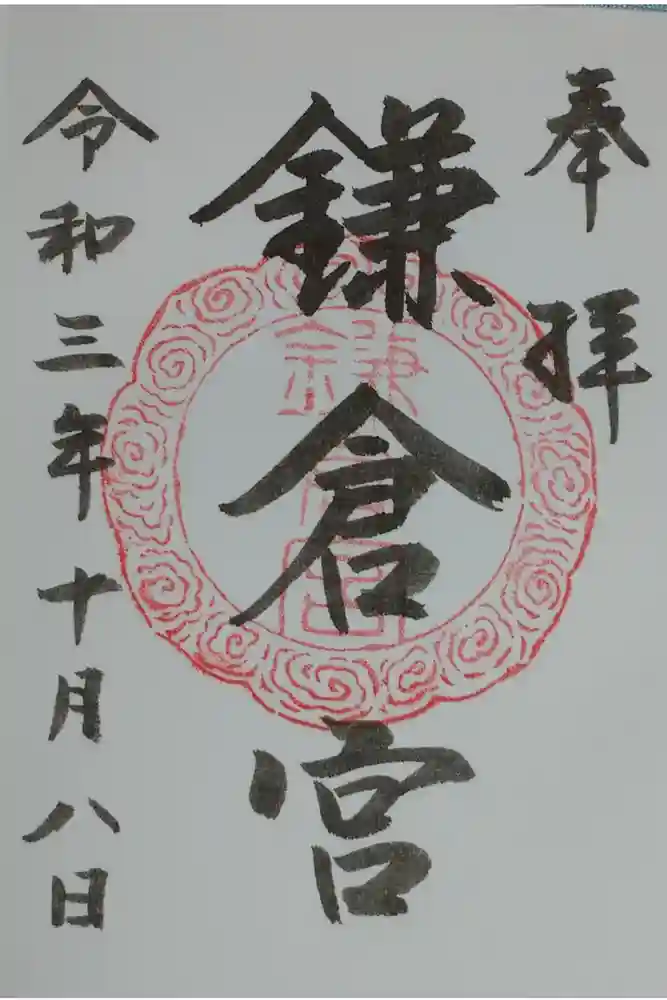 奉拝
鎌倉宮
令和三年十月八日
鎌倉宮